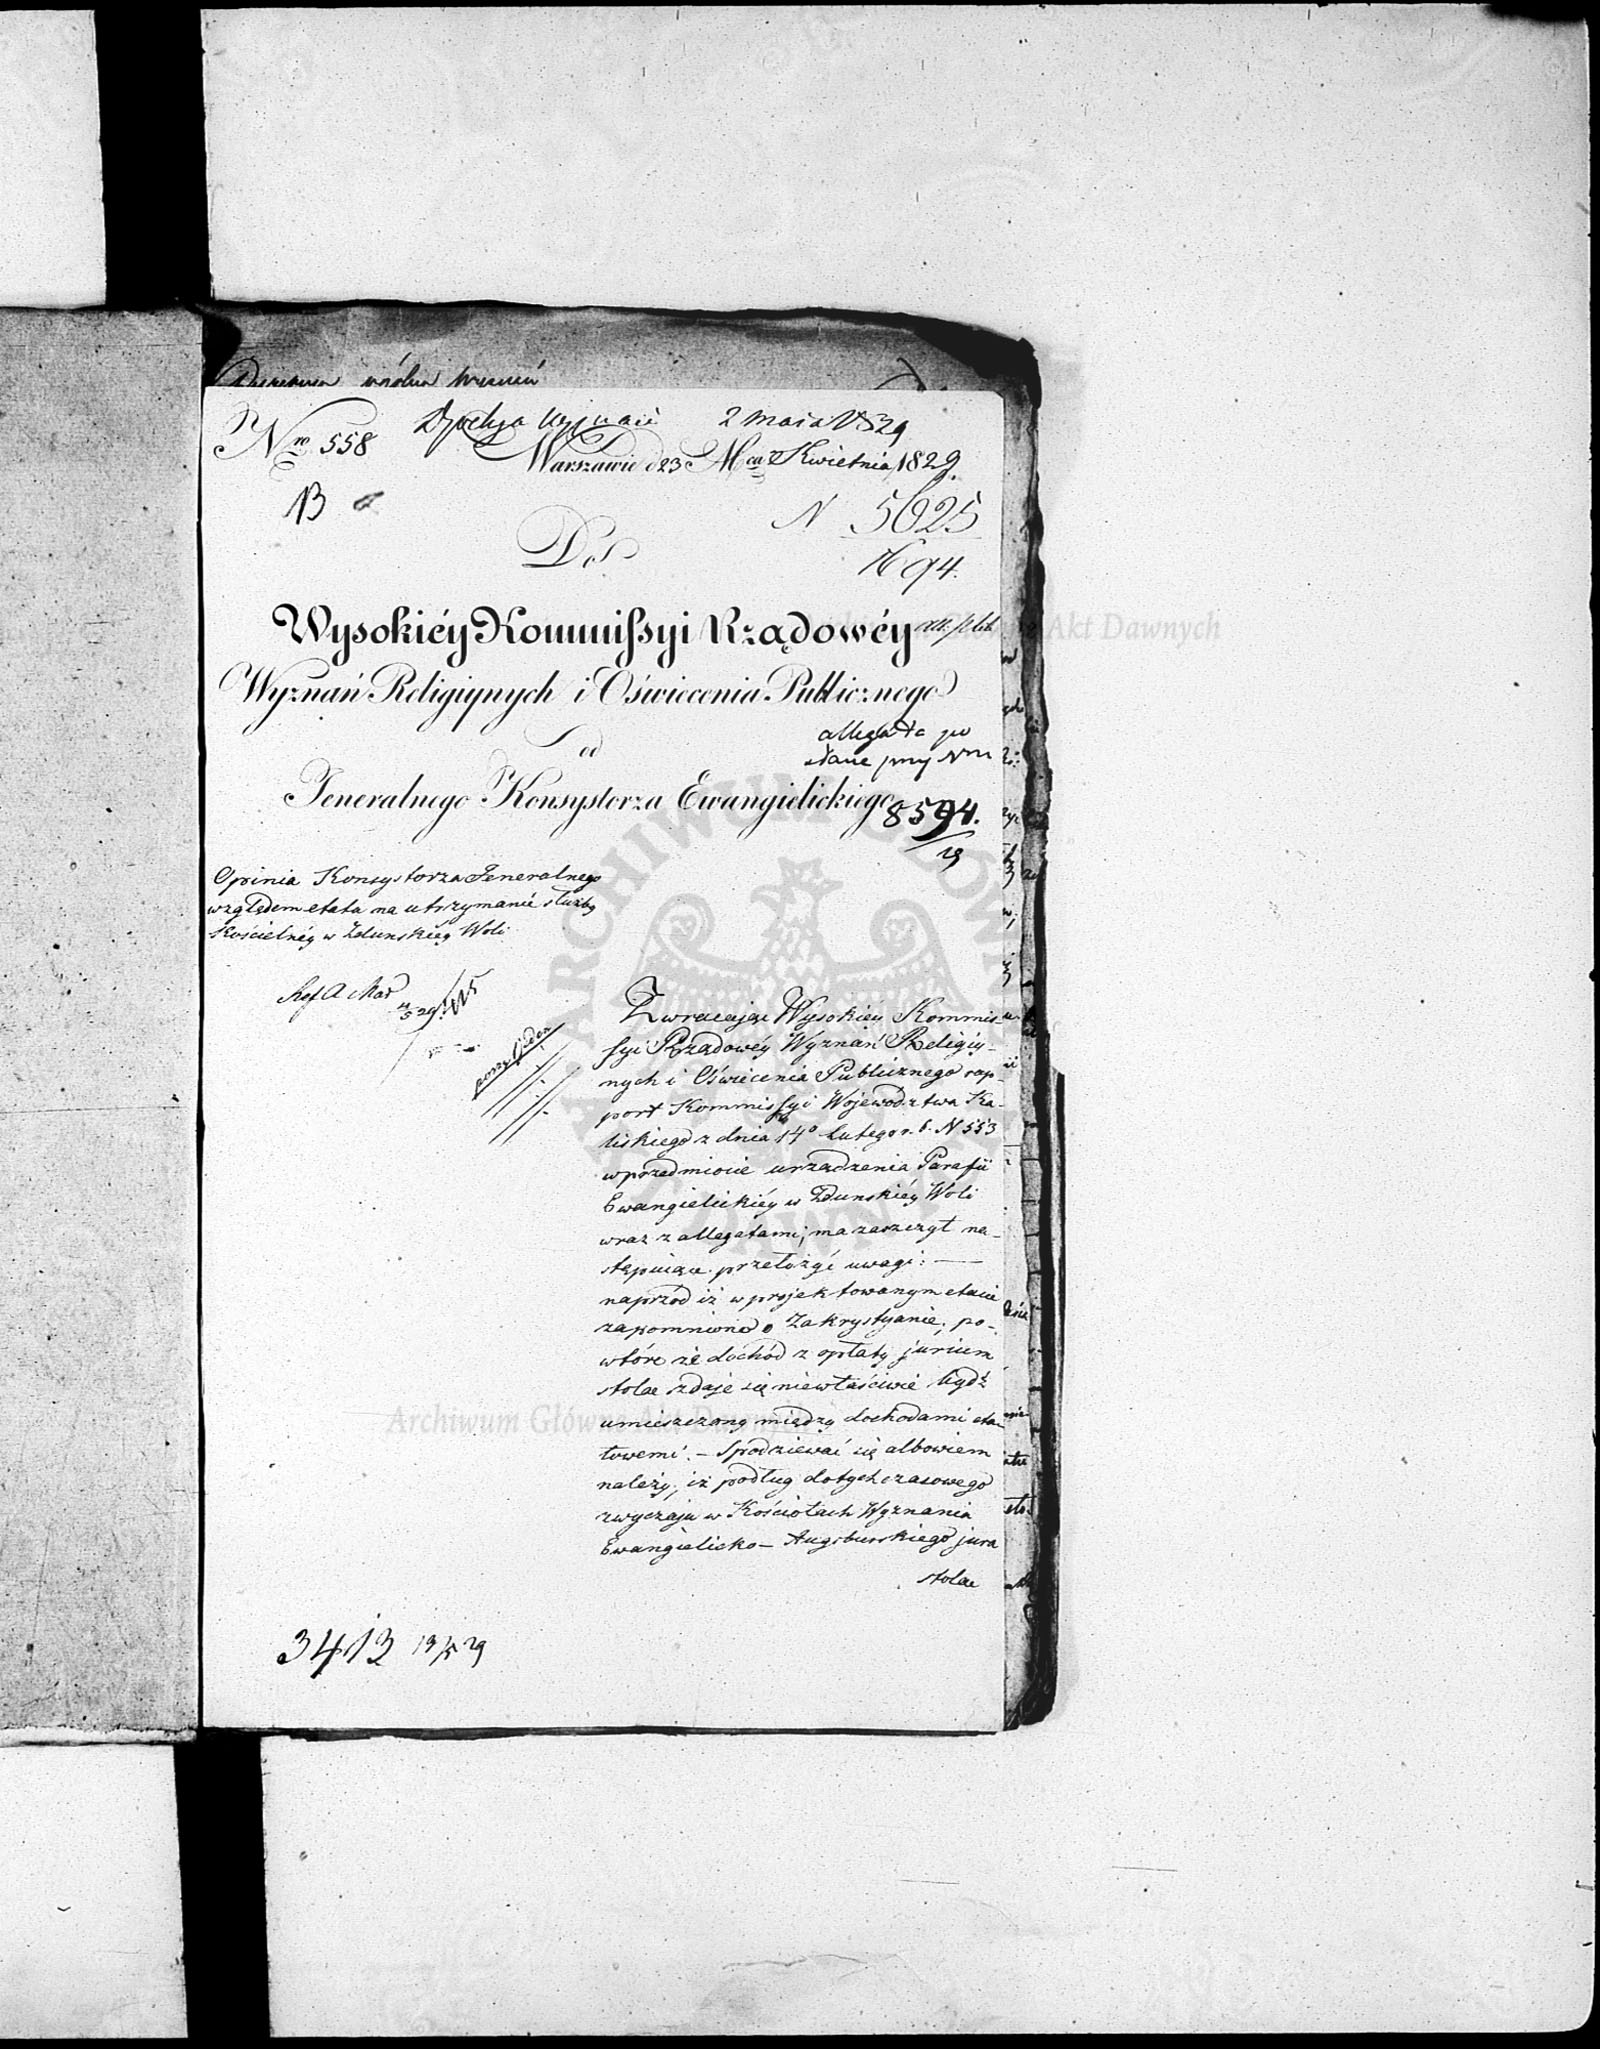 Nro 558
2 Maia 1829
Warszawie d 23 Mca Kwietnia 1829.
B
N 5625
1694.
Do
Wysokiéy Kommissyi Rządowéy
Wyznań Religiynych i Oświecenia Publicznego
od
allegata po
dane przy Nrn
Jeneralnego Konsystorza Ewangielickiego
8594.
29
Opinia Konsystorza Jeneralnego
względem etata na utrzymanie służby
Kościelnéy w Zdunskiéy Woli
Zwracaiąc Wysokiéy Kommis-
syi Rządowéy Wyznań Religiy-
nych i Oświecenia Publicznego rap-
port Kommissyi Woiewodztwa Ka-
liskiego z dnia 14o Lutego r. b. N 553
w przedmiocie urządzenia Parafii
Ewangielickiéy w Zdunskiéy Woli
wraz z allegatami, ma zaszczyt na-
stępuiące przełożyć uwagi: —
naprzód iż w projektowanym etacie
zapomniono o Zakrystyanie, po-
wtóre że dochód z opłaty jurium
stolae zdaje się niewłaściwie bydź
umieszczony między dochodami eta-
towemi. – Spodziewać się albowiem
należy, iż podług dotychczasowego
zwyczaju w Kościołach Wyznania
Ewangielicko – Augsburskiego jura
stolae
3413 13/5 29
Archiwum Główne Akt Dawnych